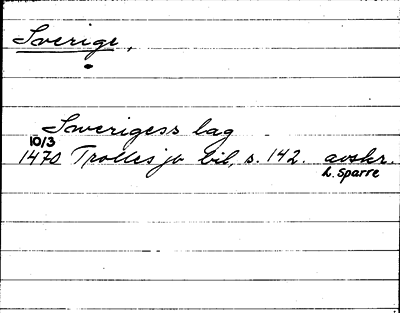 Sverige,
Swerigess lag
10/3
1470 Trolles jb bil, s. 142. avskr.
L. Sparre